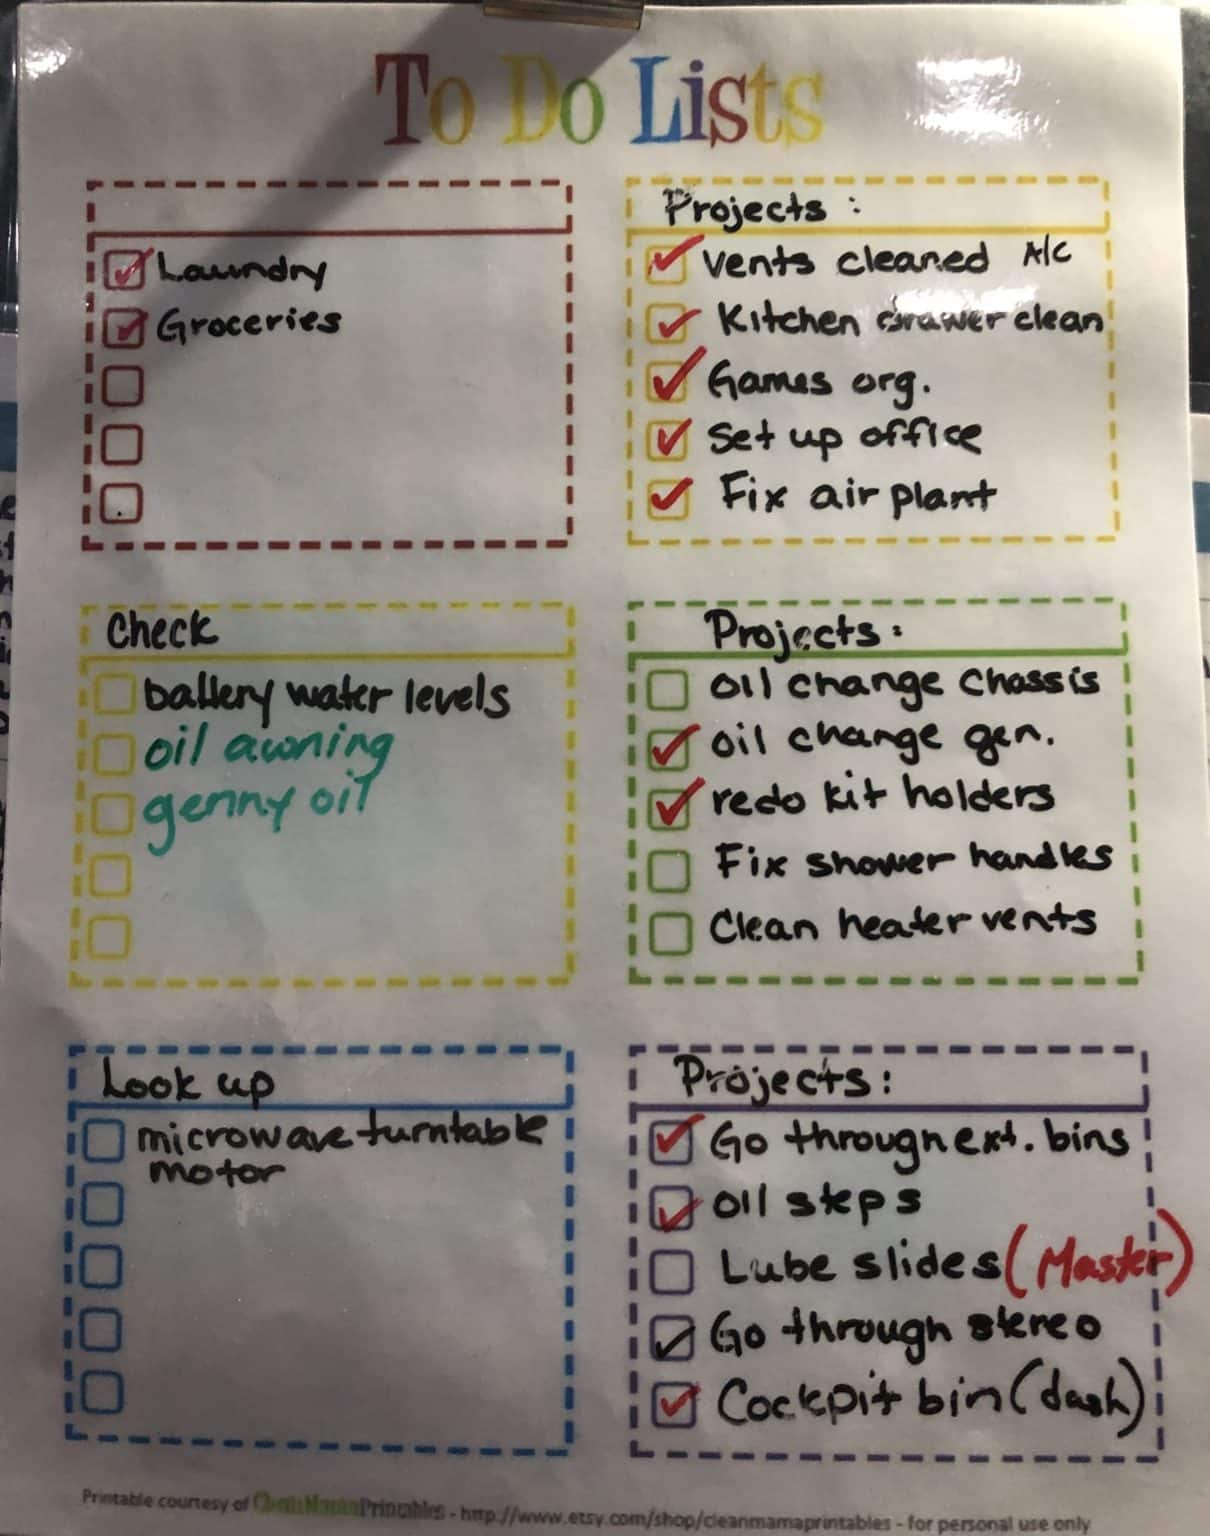 To Do Lists
Laundry
Groceries
Projects :
Vents cleaned A/c
Kitchen drawer clean
Games org.
Set up office
Fix air plant
Check
battery water levels
oil awning
genny oil
Projects :
Oil change Chassis
oil change gen.
redo kit holders
Fix shower handles
Clean heater vents
Look up
microwave turntable
motor
Projects :
Go through ext. bins
Oil steps
Lube slides (Master)
Go through stereo
Cockpit bin (dash)
Printable courtesy of CleanMamaPrintables - http://www.etsy.com/shop/cleanmamaprintables - for personal use only